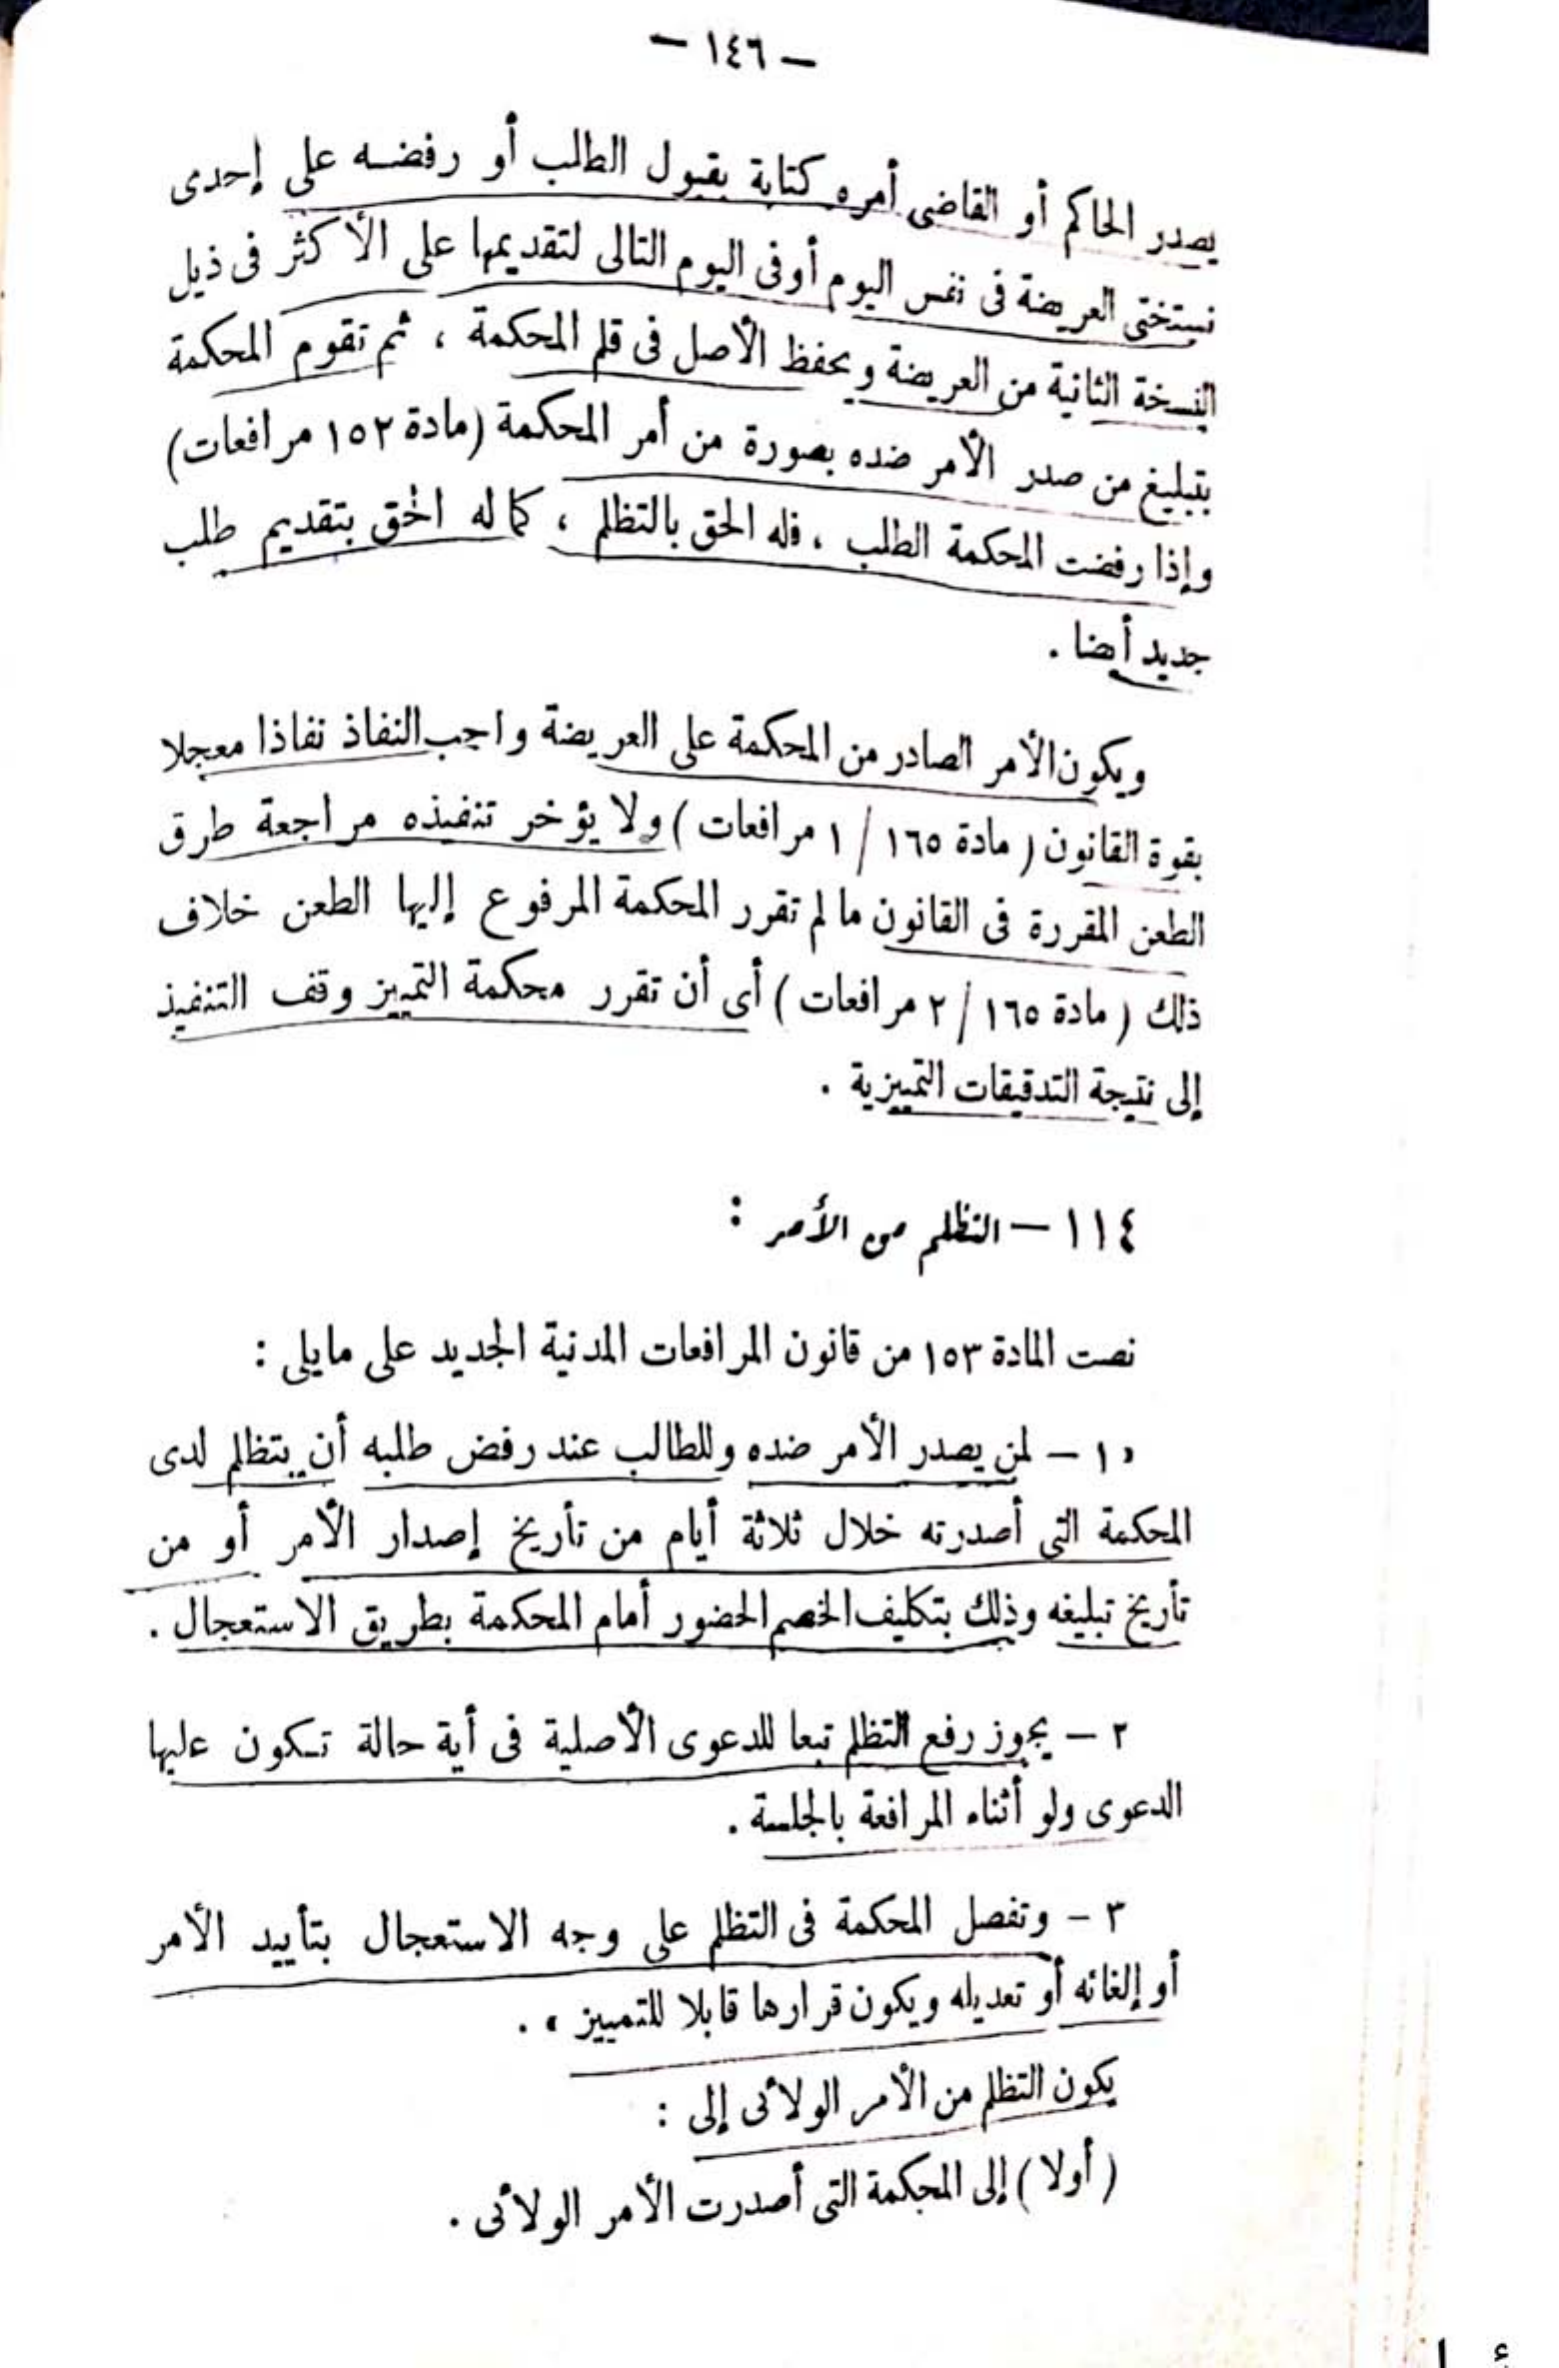 – ١٤٦ –
يصدر الحاكم أو القاضى أمره كتابة بقبول الطلب أو رفضه على إحدى
نستختى العريضة فى نفس اليوم أو فى اليوم التالى لتقديمها على الأكثر فى ذيل
النسخة الثانية من العريضة ويحفظ الأصل فى قلم المحكمة ، ثم تقوم المحكمة
بتبليغ من صدر الأمر ضده بصورة من أمر المحكمة (مادة ١٥٢ مرافعات)
وإذا رفضت المحكمة الطلب ، فله الحق بالتظلم ، كما له الحق بتقديم طلب
جديد أيضا .
ويكون الأمر الصادر من المحكمة على العريضة واجب النفاذ نفاذا معجلا
بقوة القانون ( مادة ١٦٥ / ١ مرافعات ) ولا يؤخر تنفيذه مراجعة طرق
الطعن المقررة فى القانون ما لم تقرر المحكمة المرفوع إليها الطعن خلاف
ذلك ( مادة ١٦٥ / ٢ مرافعات ) أى أن تقرر محكمة التمييز وقف التنفيذ
إلى نتيجة التدقيقات التمييزية .
١١٤ – التظلم من الأمر :
نصت المادة ١٥٣ من قانون المرافعات المدنية الجديد على مايلى :
« ١ – لمن يصدر الأمر ضده وللطالب عند رفض طلبه أن يتظلم لدى
المحكمة التى أصدرته خلال ثلاثة أيام من تأريخ إصدار الأمر أو من
تأريخ تبليغه وذلك بتكليف الخصم الحضور أمام المحكمة بطريق الاستعجال .
٢ – يجوز رفع التظلم تبعا للدعوى الأصلية فى أية حالة تكون عليها
الدعوى ولو أثناء المرافعة بالجلسة .
٣ – وتفصل المحكمة فى التظلم على وجه الاستعجال بتأييد الأمر
أو إلغائه أو تعديله ويكون قرارها قابلا للتمييز » .
يكون التظلم من الأمر الولائى إلى :
( أولا ) إلى المحكمة التى أصدرت الأمر الولائى .